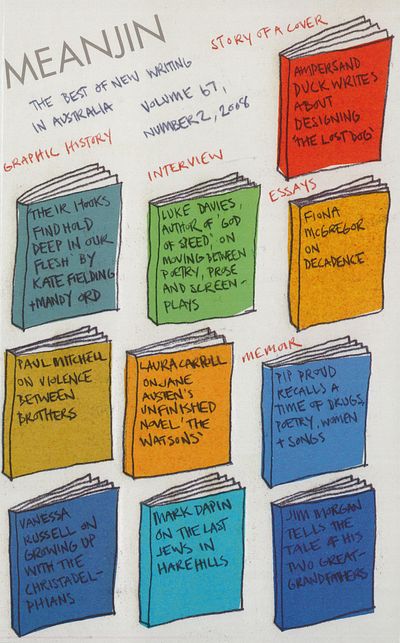 MEANJIN
THE BEST OF NEW WRITING
IN AUSTRALIA
VOLUME 67,
NUMBER 2, 2008
STORY OF A COVER
AMPERSAND
DUCK WRITES
ABOUT
DESIGNING
'THE LOST DOG'
GRAPHIC HISTORY
THEIR HOOKS
FIND HOLD
DEEP IN OUR
FLESH' BY
KATE FIELDING
+ MANDY ORD
INTERVIEW
LUKE DAVIES,
AUTHOR OF 'GOD
OF SPEED', ON
MOVING BETWEEN
POETRY, PROSE
AND SCREEN-
PLAYS
ESSAYS
FIONA
McGREGOR
ON
DECADENCE
PAUL MITCHELL
ON VIOLENCE
BETWEEN
BROTHERS
LAURA CARROLL
ON JANE
AUSTEN'S
UNFINISHED
NOVEL 'THE
WATSONS'
MEMOIR
PIP PROUD
RECALLS A
TIME OF DRUGS,
POETRY, WOMEN
+ SONGS
VANESSA
RUSSELL ON
GROWING UP
WITH THE
CHRISTADEL-
PHIANS
MARK DAPIN
ON THE LAST
JEWS IN
HAREHILLS
JIM MORGAN
TELLS THE
TALE OF HIS
TWO GREAT-
GRANDFATHERS